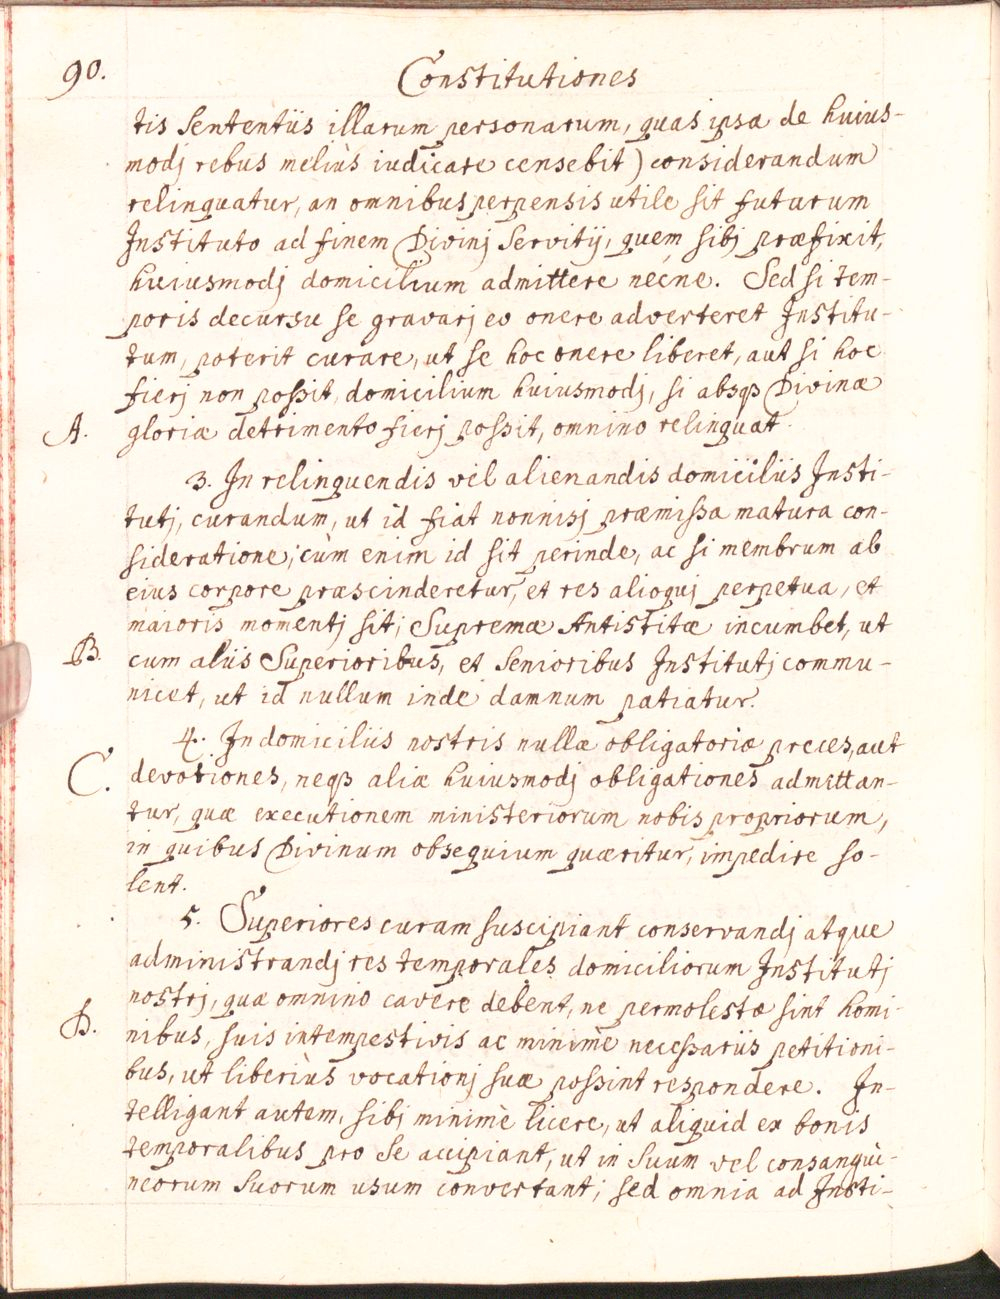 90.
Constitutiones
tis sententiis illarum personarum, quas ipsa de huius-
modj rebus meliùs iudicare censebit) considerandum
relinquatur, an omnibus perpensis utile sit futurum
Instituto ad finem Divinj Servitij, quem sibj præfixit,
huiusmodj domicilium admittere necne. Sed si tem-
poris decursu se gravarj eo onere adverteret Institu-
tum, poterit curare, ut se hoc onere liberet, aut si hoc
fierj non possit, domicilium huiusmodj, si absqȝ Divinæ
A. gloriæ detrimento fierj possit, omnino relinquat.
3. In relinquendis vel alienandis domiciliis Insti-
tutj, curandum, ut id fiat nonnisj præmissa matura con-
sideratione; cùm enim id sit perinde, ac si membrum ab
eius corpore præscinderetur, et res alioquj perpetua, et
maioris momentj sit; Supremæ Antistitæ incumbet, ut
B. cum aliis Superioribus, et Senioribus Institutj commu-
nicet, ut id nullum inde damnum patiatur.
4. In domiciliis nostris nullæ obligatoriæ preces, aut
C. devotiones, neqȝ aliæ huiusmodj obligationes admittan-
tur, quæ executionem ministeriorum nobis propriorum,
in quibus Divinum obsequium quæritur, impedire so-
lent.
5. Superiores curam suscipiant conservandj atque
administrandj res temporales domiciliorum Institutj
nostrj, quæ omnino cavere debent, ne permolestæ sint homi-
D. nibus, suis intempestivis ac minimè necessariis petitioni-
bus, ut liberiùs vocationj suæ possint respondere. In-
telligant autem, sibj minimè licere, ut aliquid ex bonis
temporalibus pro se accipiant, ut in suum vel consangui-
neorum suorum usum convertant; sed omnia ad Insti-